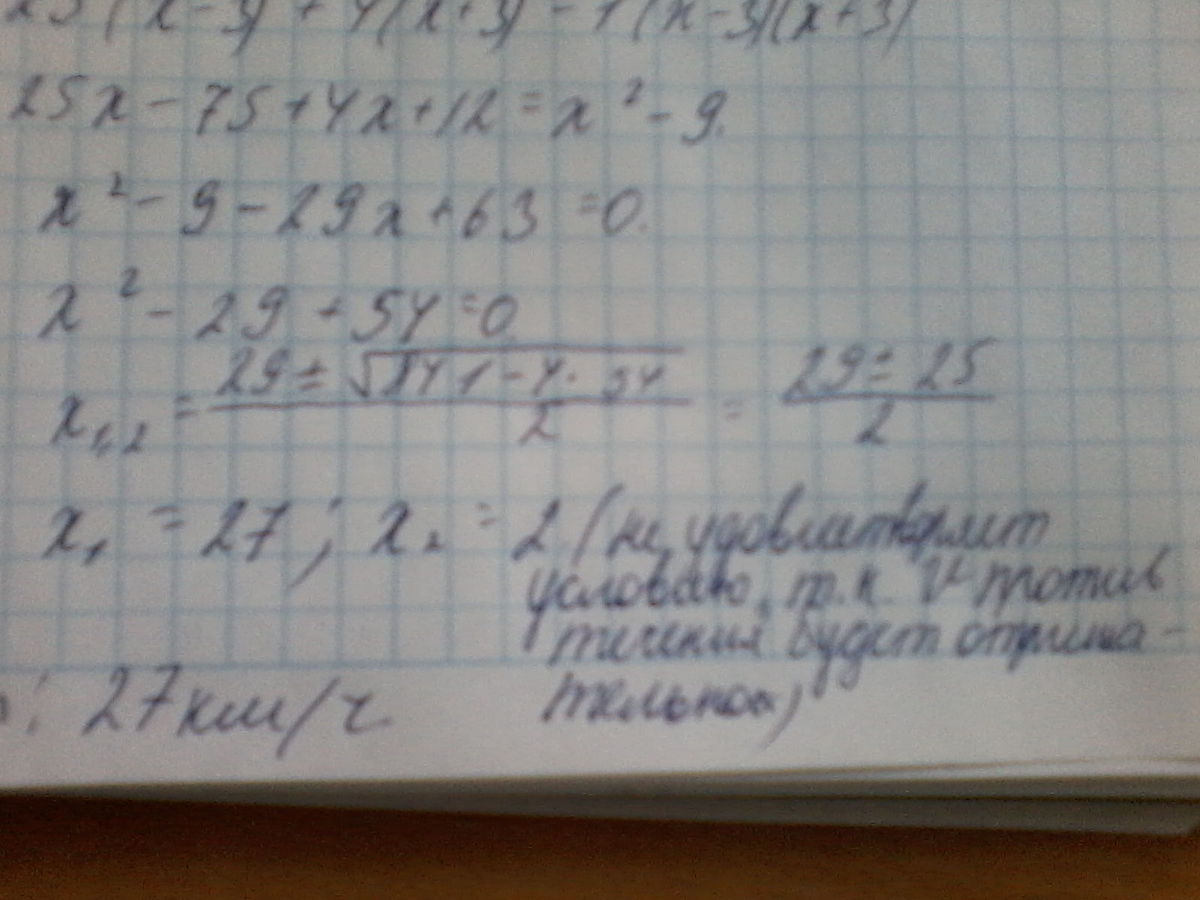 25(x-3)+4(x+3)=1(x-3)(x+3)
25x-75+4x+12=x²-9.
x²-9-29x+63=0.
x²-29+54=0
x₁,₂ = (29±√841-4·54)/2 = (29±25)/2
x₁ = 27; x₂ = 2 (не удовлетворяет
условию, т.к V против
течения будет отрица-
тельной)
: 27 км/ч